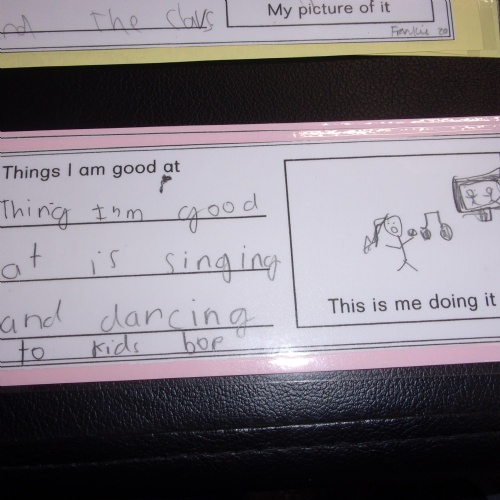 nd the stavs
My picture of it
Frankie 20
Things I am good at
Thing Inm good
at is singing
and dancing
to kids bop
This is me doing it